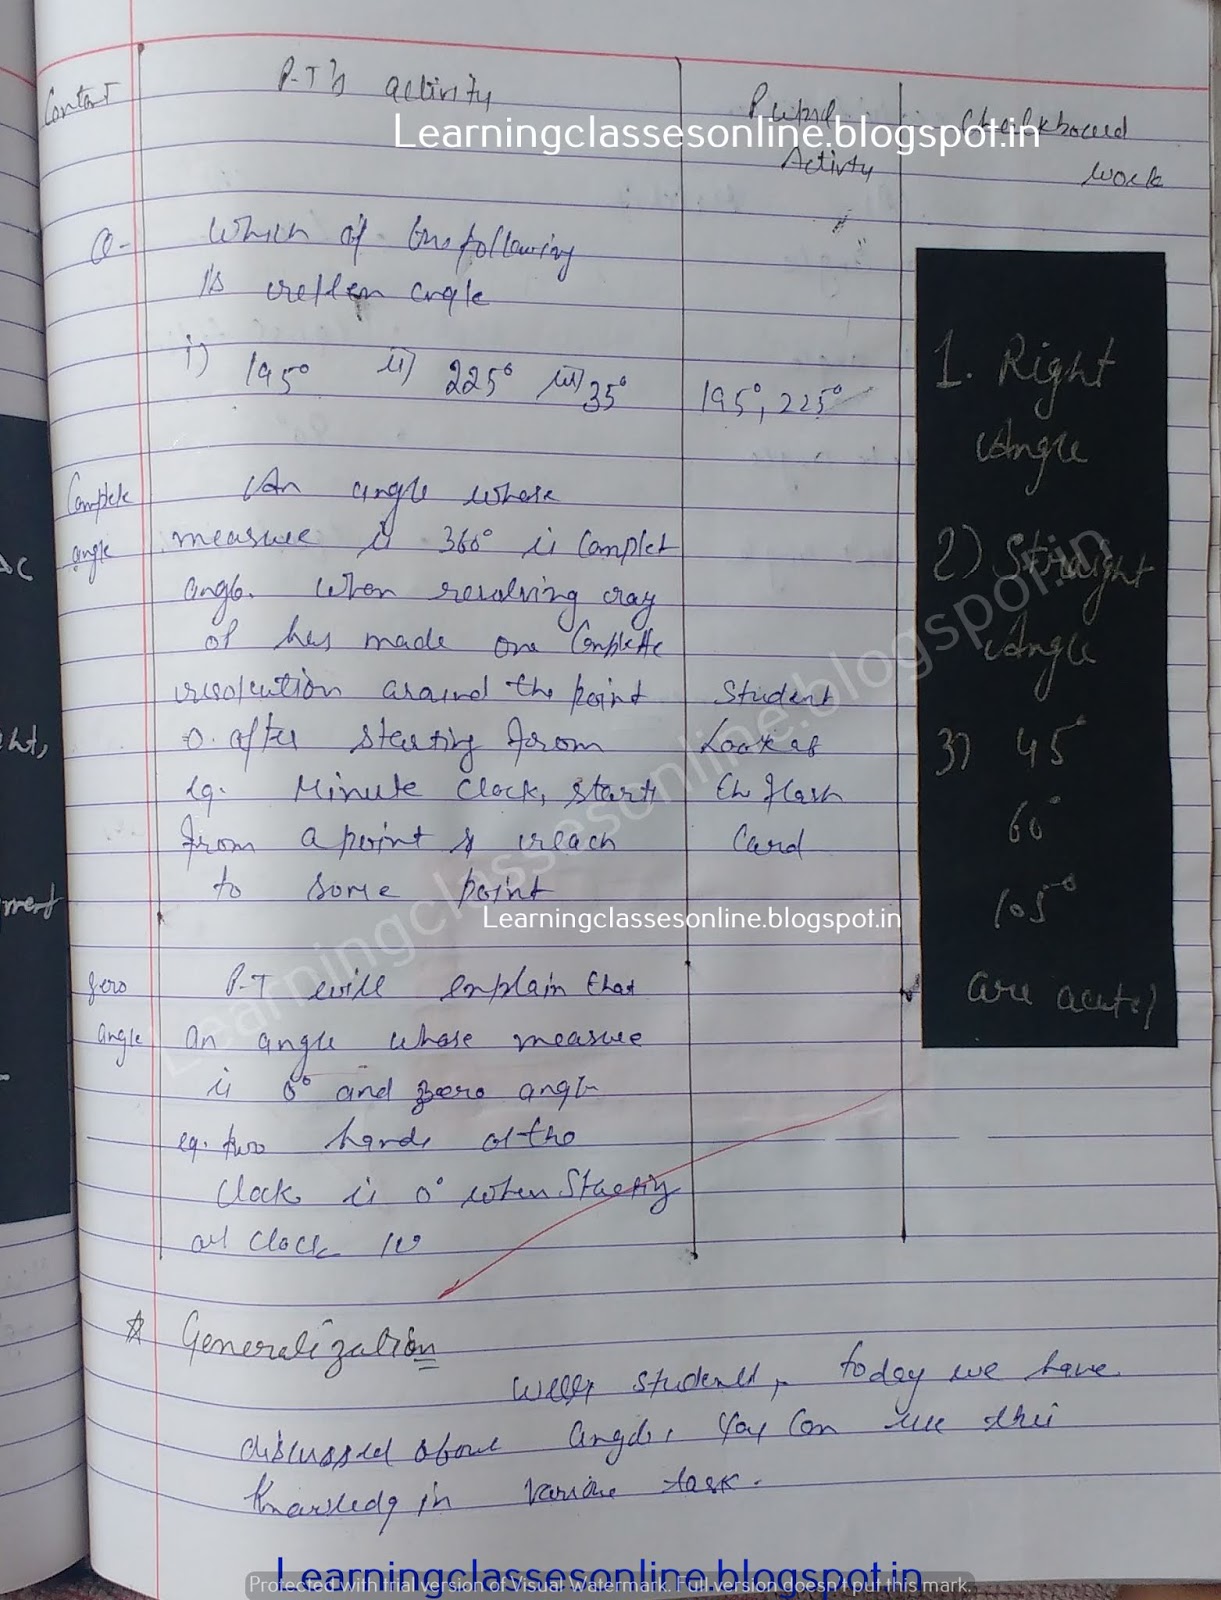 Contact P-T's activity Pupil Activity Chalkboard work
Learningclassesonline.blogspot.in
Q- Which of the following
is reflex angle
i) 195° ii) 225° iii) 35° 195°, 225°
Complete angle
An angle whose
measure is 360° is Complet
angle. When revolving ray
of has made one Complette
revolution around the point
o. after starting from
eg. Minute Clock, starts
from a point & reach
to some point
Student
Look at
the flash
Card
Learningclassesonline.blogspot.in
Learningclassesonline.blogspot.in
zero angle
P-T will explain that
an angle whose measure
is 0° and zero angle
eg. two hands of the
Clock is 0° when
at clock
1. Right
Angle
2) Straight
Angle
3) 45°
60°
105°
are acute
☆ Generalization
students, today we have
discussed about angles. You Can use this
knowledg in various task.
Learningclassesonline.blogspot.in
Protected with trial version of Visual Watermark. Full version doesn't put this mark.
AC
ht,
ment